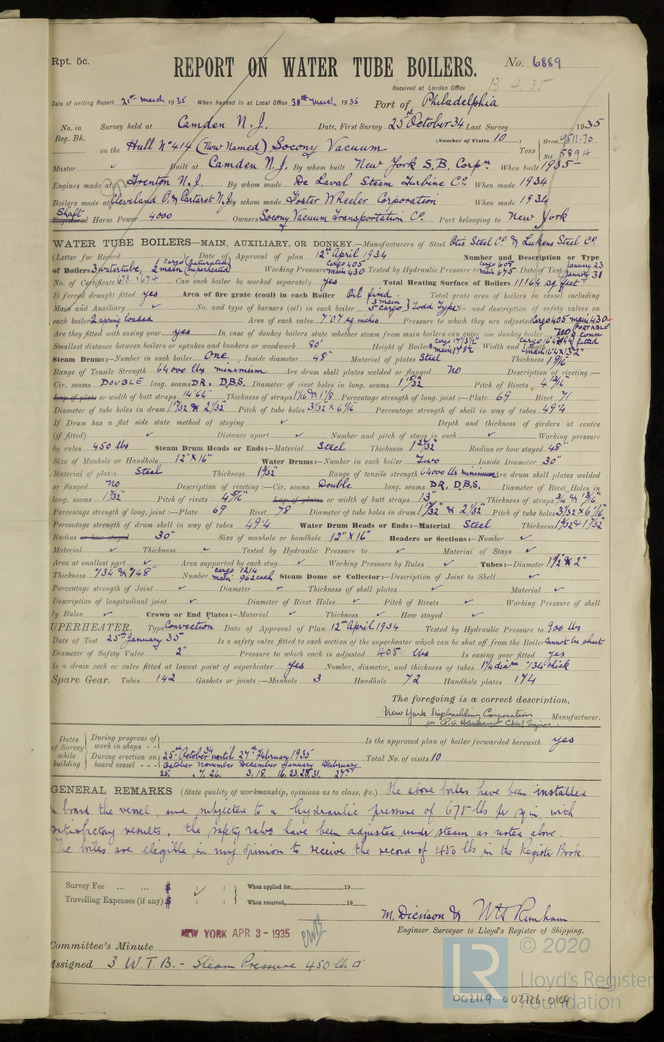 Rpt. 5c.
REPORT ON WATER TUBE BOILERS.
No. 6889
Received at London Office
Date of writing Report 21st March 1935 When handed in at Local Office 30th March 1935 Port of Philadelphia
No. in Survey held at Camden N.J. Date, First Survey 25th October 34 Last Survey 1935
Reg. Bk. (Number of Visits 10)
on the Hull No 414 (Now Named) Socony Vacuum Tons Gross 9511.70 Net 5894
Master ✓ Built at Camden N.J. By whom built New York S.B. Corpn When built 1935
Engines made at Trenton N.J. By whom made De Laval Steam Turbine Co. When made 1934
Boilers made at Cleveland O. & Carteret N.J. By whom made Foster Wheeler Corporation When made 1934
Shaft Horse Power 4000 Owners Socony Vacuum Transportation Co. Port belonging to New York
WATER TUBE BOILERS—MAIN, AUXILIARY, OR DONKEY.—Manufacturers of Steel Otis Steel Co. & Lukens Steel Co.
(Letter for Record ) Date of Approval of plan 12th April 1934 Number and Description or Type
of Boilers 3 watertube, 1 cargo (Saturation) 2 main (Superheated) Working Pressure cargo 405 main 430 Tested by Hydraulic Pressure to cargo 608 main 675 Date of Test January 23 January 31
No. of Certificate Can each boiler be worked separately yes Total Heating Surface of Boilers 11164 sq feet
Is forced draught fitted yes Area of fire grate (coal) in each Boiler Oil fired. Total grate area of boilers in vessel including
Main and Auxiliary ✓ No. and type of burners (oil) in each boiler 3 main 5 cargo Todd Type No. and description of safety valves on
each boiler 2 spring loaded Area of each valve 7.07 sq inches Pressure to which they are adjusted cargo 405 main 430
Are they fitted with easing gear yes In case of donkey boilers state whether steam from main boilers can enter the donkey boiler no PORTABLE conn fitted
Smallest distance between boilers or uptakes and bunkers or woodwork 80" Height of Boiler Width and Length
Steam Drums:—Number in each boiler One Inside diameter 48" Material of plates Steel Thickness
Range of Tensile Strength 64000 lbs minimum Are drum shell plates welded or flanged no Description of riveting:—
Cir. seams DOUBLE long. seams DR. D.B.S. Diameter of rivet holes in long. seams 1 1/32 Pitch of Rivets
Lap of plate or width of butt straps Thickness of straps Percentage strength of long. joint:—Plate 69 Rivet 71
Diameter of tube holes in drum Pitch of tube holes Percentage strength of shell in way of tubes 49.4
If Drum has a flat side state method of staying ✓ Depth and thickness of girders at centre
(if fitted) ✓ Distance apart ✓ Number and pitch of stays in each ✓ Working pressure
by rules 450 lbs Steam Drum Heads or Ends:—Material Steel Thickness Radius or how stayed 48"
Size of Manhole or Handhole 12" x 16" Water Drums:—Number in each boiler Two Inside Diameter 30"
Material of plates Steel Thickness Range of tensile strength 64000 lbs minimum Are drum shell plates welded
or flanged no Description of riveting:—Cir. seams Double long. seams DR. D.B.S. Diameter of Rivet Holes in
long. seams Pitch of rivets Lap of plates or width of butt straps 13" Thickness of straps
Percentage strength of long. joint:—Plate 69 Rivet 78 Diameter of tube holes in drum Pitch of tube holes
Percentage strength of drum shell in way of tubes 49.4 Water Drum Heads or Ends:—Material Steel Thickness
Radius or how stayed 30" Size of manhole or handhole 12" x 16" Headers or Sections:—Number ✓
Material ✓ Thickness ✓ Tested by Hydraulic Pressure to ✓ Material of Stays ✓
Area at smallest part ✓ Area supported by each stay ✓ Working Pressure by Rules ✓ Tubes:—Diameter 1 1/2" & 2"
Thickness .134" & .148" Number cargo 1214 main 962 each Steam Dome or Collector:—Description of Joint to Shell ✓
Percentage strength of Joint ✓ Diameter ✓ Thickness of shell plates ✓ Material ✓
Description of longitudinal joint ✓ Diameter of Rivet Holes ✓ Pitch of Rivets ✓ Working Pressure of shell
by Rules ✓ Crown or End Plates:—Material ✓ Thickness ✓ How stayed ✓
UPERHEATER. Type Convection Date of Approval of Plan 12th April 1934 Tested by Hydraulic Pressure to 900 lbs
Date of Test 25th January 35 Is a safety valve fitted to each section of the superheater which can be shut off from the Boiler Cannot be shut
Diameter of Safety Valve 2" Pressure to which each is adjusted 405 lbs Is easing gear fitted yes
Is a drain cock or valve fitted at lowest point of superheater yes Number, diameter, and thickness of tubes 1 1/4 diam .134 thick
Spare Gear. Tubes 142 Gaskets or joints:—Manhole 3 Handhole 72 Handhole plates 174
The foregoing is a correct description,
New York Shipbuilding Corporation Manufacturer.
Chief Engr.
Dates of Survey while building
During progress of work in shops - -
During erection on board vessel - - -
25th October 34 until 27th February 1935
October November December January February
25. 7. 26. 3. 18. 16. 23. 28. 31. 27th
Is the approved plan of boiler forwarded herewith yes
Total No. of visits 10
GENERAL REMARKS (State quality of workmanship, opinions as to class, &c.) The above boilers have been installed
board the vessel, and subjected to a hydraulic pressure of 675 lbs per sq in, with
satisfactory results, the safety valves have been adjusted under steam as noted above.
The boilers are elegible in my opinion to receive the record of 450 lbs in the Register Book.
Survey Fee ... ... $ ✓ : When applied for, 19
Travelling Expenses (if any) $ : When received, 19
M. Dickison & Wm Rumham
Engineer Surveyor to Lloyd's Register of Shipping.
NEW YORK APR 3 - 1935
Committee's Minute
Assigned 3 W.T.B. - Steam Pressure 450 lbs
© 2020
LR
Lloyd's Register
Foundation
002119-002126-0104